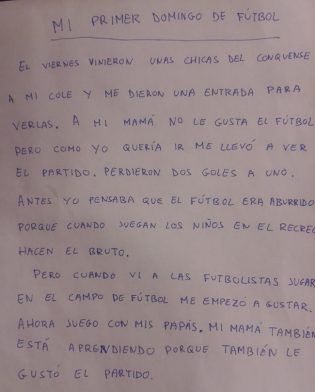 MI PRIMER DOMINGO DE FÚTBOL
EL VIERNES VINIERON UNAS CHICAS DEL CONQUENSE
A MI COLE Y ME DIERON UNA ENTRADA PARA
VERLAS. A MI MAMÁ NO LE GUSTA EL FÚTBOL
PERO COMO YO QUERÍA IR ME LLEVÓ A VER
EL PARTIDO. PERDIERON DOS GOLES A UNO.
ANTES YO PENSABA QUE EL FÚTBOL ERA ABURRIDO
PORQUE CUANDO JUEGAN LOS NIÑOS EN EL RECREO
HACEN EL BRUTO.
PERO CUANDO VI A LAS FUTBOLISTAS JUGAR
EN EL CAMPO DE FÚTBOL ME EMPEZÓ A GUSTAR.
AHORA JUEGO CON MIS PAPÁS. MI MAMÁ TAMBIÉN
ESTÁ APRENDIENDO PORQUE TAMBIÉN LE
GUSTÓ EL PARTIDO.